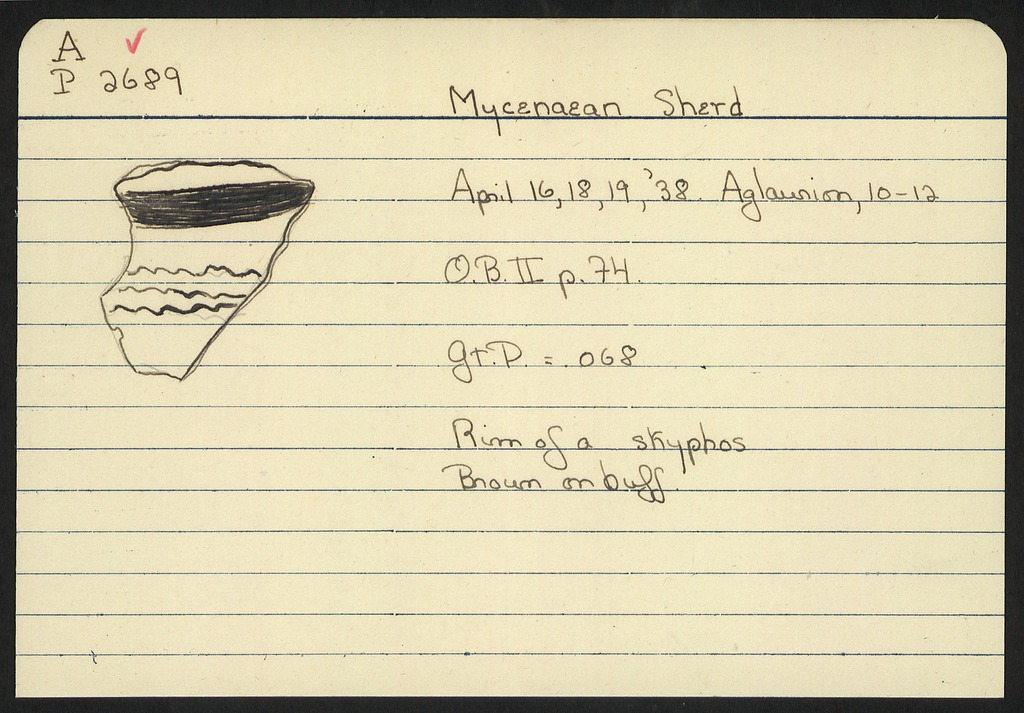 A ✓
P 2689
Mycenaean Sherd
April 16, 18, 19, '38. Aglaurion, 10-12
O.B. II p. 74.
Gt. D. = .068
Rim of a skyphos
Brown on buff.